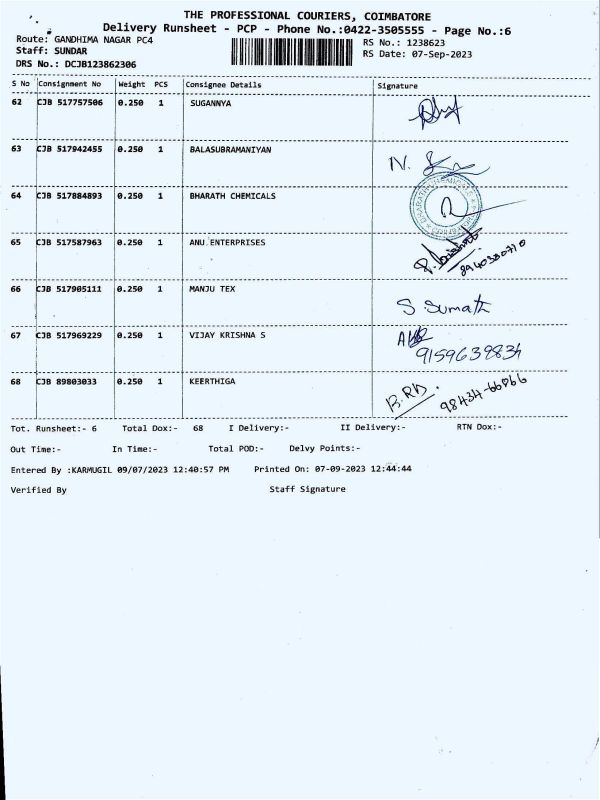 THE PROFESSIONAL COURIERS, COIMBATORE
Delivery Runsheet - PCP - Phone No.:0422-3505555 - Page No.:6
Route: GANDHIMA NAGAR PC4
RS No.: 1238623
Staff: SUNDAR
RS Date: 07-Sep-2023
DRS No.: DCJB123862306
S No Consignment No Weight PCS Consignee Details Signature
62 CJB 517757506 0.250 1 SUGANNYA
63 CJB 517942455 0.250 1 BALASUBRAMANIYAN
N.
64 CJB 517884893 0.250 1 BHARATH CHEMICALS
65 CJB 517587963 0.250 1 ANU ENTERPRISES
8940380770
66 CJB 517905111 0.250 1 MANJU TEX
S. Sumath
67 CJB 517969229 0.250 1 VIJAY KRISHNA S
9159639834
68 CJB 89803033 0.250 1 KEERTHIGA
98434-66066
Tot. Runsheet:- 6 Total Dox:- 68 I Delivery:- II Delivery:- RTN Dox:-
Out Time:- In Time:- Total POD:- Delvy Points:-
Entered By :KARMUGIL 09/07/2023 12:40:57 PM Printed On: 07-09-2023 12:44:44
Verified By Staff Signature